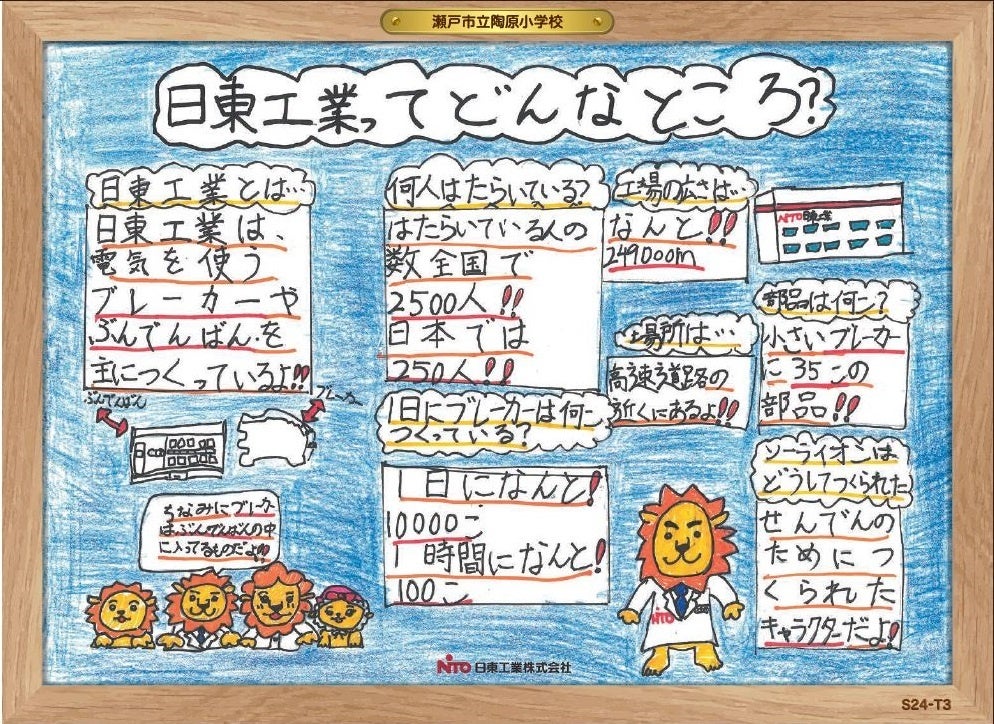 瀬戸市立陶原小学校
日東工業ってどんなところ?
日東工業とは…
日東工業は、
電気を使う
ブレーカーや
ぶんでんばんを
主につくっているよ!!
ぶんでんばん
ブレーカー
ちなみにブレーカー
はぶんでんばんの中
に入ってるものだよ!!
何人はたらいている?
はたらいている人の
数全国で
2500人!!
日本では
250人!!
1日にブレーカーは何こ
つくっている?
1日になんと!
10000こ
1時間になんと!
100こ
工場の広さは…
なんと!!
249000m
場所は…
高速道路の
近くにあるよ!!
NITO日東工業
部品は何こ?
小さいブレーカー
に35この
部品!!
ソーライオンは
どうしてつくられた
せんでんの
ためにつ
くられた
キャラクターだよ!
NITO
NITO 日東工業株式会社
S24-T3